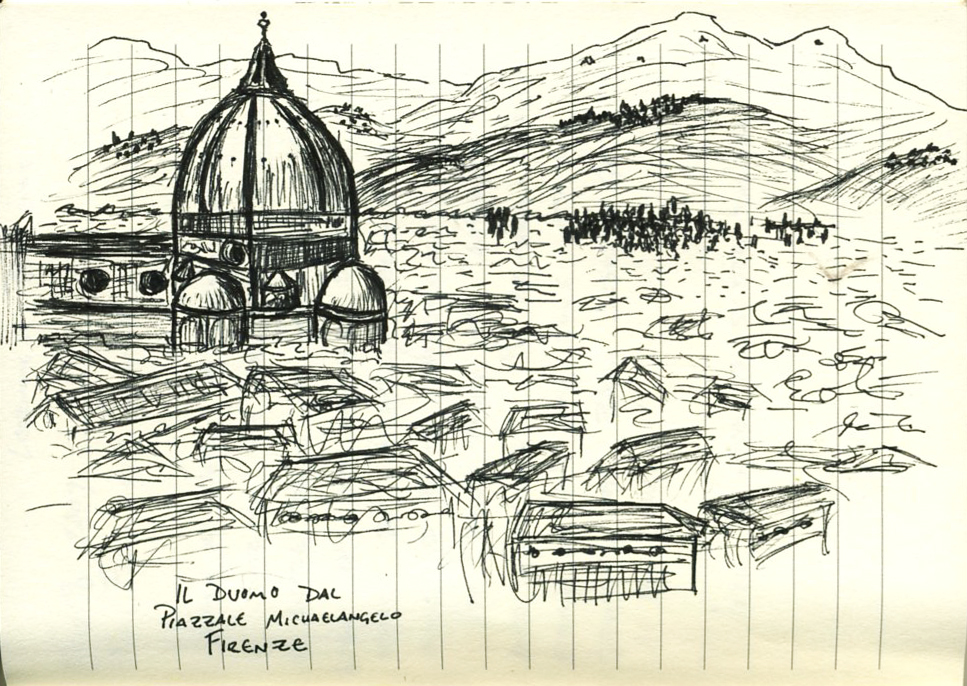 IL DUOMO DAL
PIAZZALE MICHAELANGELO
FIRENZE